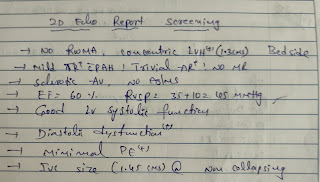 2D Echo Report Screening
→ No RWMA, concentric LVH(+) (1.3cms) Bedside
→ Mild TR(+) ĒPAH! Trivial AR(+)! No MR
→ Sclerotic AV, No
→ EF = 60% RVSP = 35+10 = 45 mmHg
→ Good LV systolic function
→ Diastolic dysfunction(+)
→ Minimal PE(+)
→ IVC size (1.45 cms) @ non collapsing